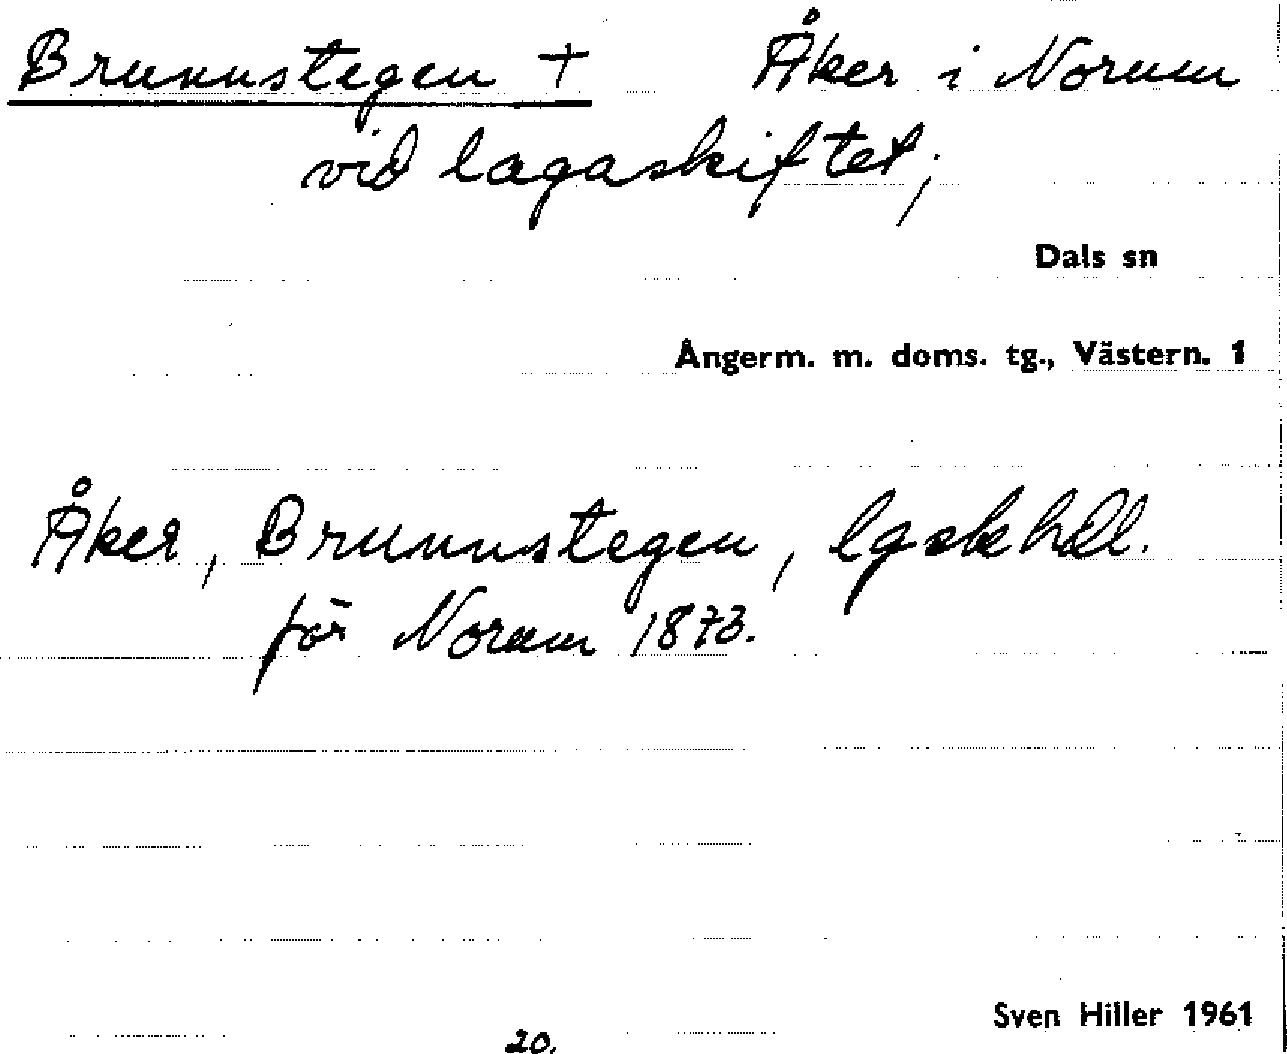 Brunnstegen + Åker i Norum
vid lagaskiftet;
Dals sn
Ångerm. m. doms. tg., Västern. 1
Åker, Brunnstegen, lgskhdl.
för Norum 1873.
Sven Hiller 1961
20.